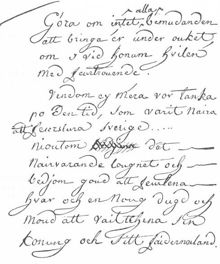 alla
Göra om intet, bemudanden
att bringa er under ouket
om i vid honum hvilen
med feurtrouende.
Vendom ey mera vor tanka
po den tid, som varit Naira
att feurstura Sverige.....
nioutom det
Nairvarande lougnet och
bedjom goud att feurlena
hvar och en Moug dugd och
Moud att vaita hena Sin
konung och Sitt faidernouland.